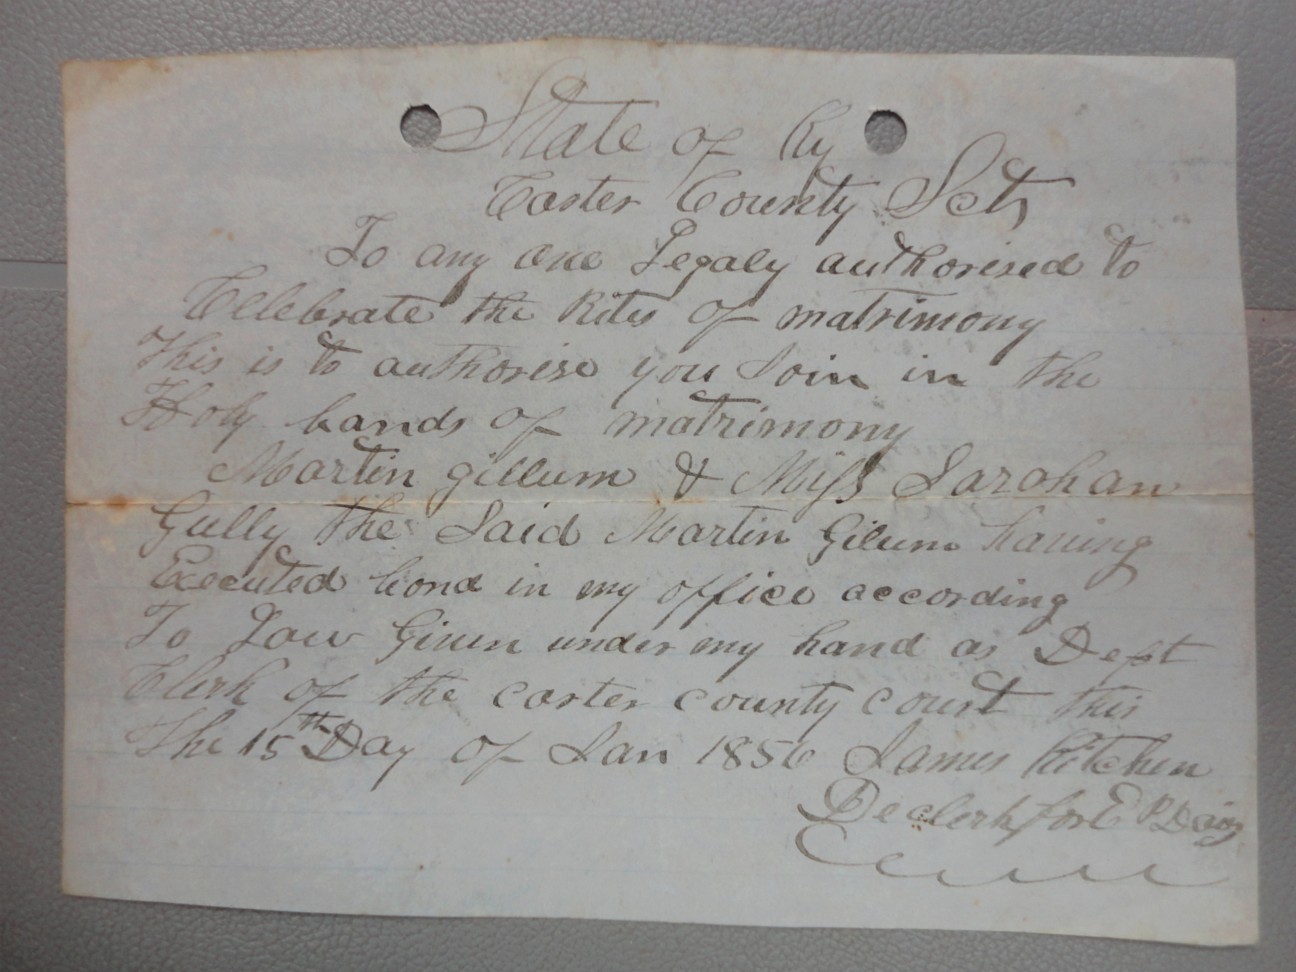 State of Ky
Carter County Sct,
To any one Legaly authorised to
Cellebrate the Rites of matrimony
This is to authorise you Join in the
Holy bands of matrimony
Martin gillum & Miss Sarahan
Gully the Said Martin Gilum having
Executed bond in my office according
To Law Given under my hand as Dept
Clerk of the carter county court this
The 15th Day of Jan 1856 James Kitchen
De clerk for E P Davis